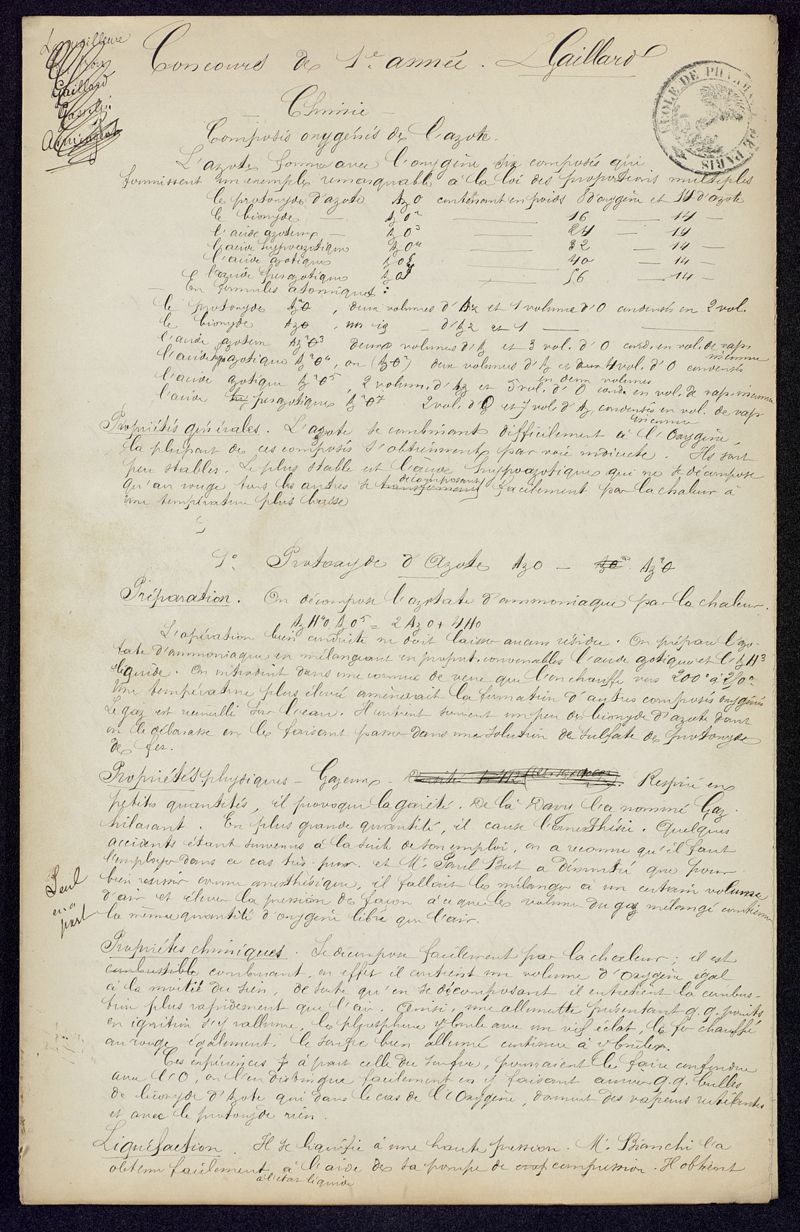 Concours de 1re année. L Gaillard
Gaillard
ECOLE DE PHARMACIE DE PARIS
Chimie
Composés oxygénés de l'azote.
L'azote forme avec l'oxygène six composés qui
fournissent un exemple remarquable à la loi des proportions multiples
le protoxyde d'azote AzO contenant en poids 8 d'oxygène et 14 d'azote
le bioxyde — AzO² — 16 — 14 —
l'acide azoteux — AzO³ — 24 — 14 —
l'acide hypoazotique AzO⁴ — 32 — 14 —
l'acide azotique AzO⁵ — 40 — 14 —
l'acide perazotique AzO⁷ — 56 — 14 —
— En formules atomiques :
le protoxyde Az²O, deux volumes d'Az et 1 volume d'O condensés en 2 vol.
le bioxyde AzO, — d'Az et 1 —
l'acide azoteux Az²O³ deux volumes d'Az et 3 vol. d'O cond. en vol. de vap. inconnu
l'acide hypoazotique Az²O⁴, ou (AzO²) deux volumes d'Az et 4 vol. d'O condensés
en deux volumes
l'acide azotique Az²O⁵, 2 volum. d'Az et 5 vol. d'O cond. en vol. de vap. inconnu
l'acide perazotique Az²O⁷ 2 vol. d'O et 7 vol. d'Az condensés en vol. de vap
inconnu
Propriétés générales. L'azote se combinant difficilement à l'Oxygène,
la plupart de ces composés s'obtiennent par voie indirecte. Ils sont
peu stables. Le plus stable est l'acide hypoazotique qui ne se décompose
qu'au rouge tous les autres se transforment décomposent facilement par la chaleur à
une température plus basse
1o Protoxyde d'Azote AzO — Az²O
Préparation. On décompose l'azotate d'ammoniaque par la chaleur.
AzH⁴O, AzO⁵ = 2AzO + 4HO
L'opération bien conduite ne doit laisser aucun résidu. On prépare l'azo-
tate d'ammoniaque en mélangeant en proport. convenables l'acide azotique et l'AzH³
liquide. On introduit dans une cornue de verre que l'on chauffe vers 200° à 250°
Une température plus élevée amènerait la formation d'autres composés oxygénés
Le gaz est recueilli sur l'eau. Il entient souvent un peu de bioxyde d'azote dont
on le débarasse en le faisant passer dans une solution de sulfate de protoxyde
de fer.
Propriétés physiques — Gazeux — Respiré en
petites quantités, il provoque la gaieté. De là Davy l'a nommé Gaz
hilarant. En plus grande quantité, il cause l'anesthésie. Quelques
accidents étant survenus à la suite de son emploi, on a reconnu qu'il faut
l'employer dans ce cas très-pur. et M. Paul Bert a démontré que pour
bien réussir comme anesthésique, il fallait le mélanger à un certain volume
d'air et élever la pression de façon à ce que le volume du gaz mélangé contienne
la même quantité d'oxygène libre que l'air.
Propriétés chimiques. Se décompose facilement par la chaleur ; il est
combustible comburant, en effet il contient un volume d'Oxygène égal
à la moitié du sien, de sorte qu'en se décomposant il entretient la combus-
tion plus rapidement que l'air. Ainsi, une allumette présentant q.q. points
en ignition s'y rallume, le phosphore y brule avec un vif éclat, le fer chauffé
au rouge également, le soufre bien allumé continue à y bruler.
Ces expériences à part celle du soufre, pourraient le faire confondre
avec l'O, on l'en distingue facilement en y faisant arriver q.q. bulles
de bioxyde d'Azote qui dans le cas de l'Oxygène, donnent des vapeurs rutilantes
et avec le protoxyde rien.
Liquéfaction. Il se liquéfie à une haute pression. M. Bianchi l'a
obtenu facilement à l'état liquide à l'aide de sa pompe de compression. Il obtient